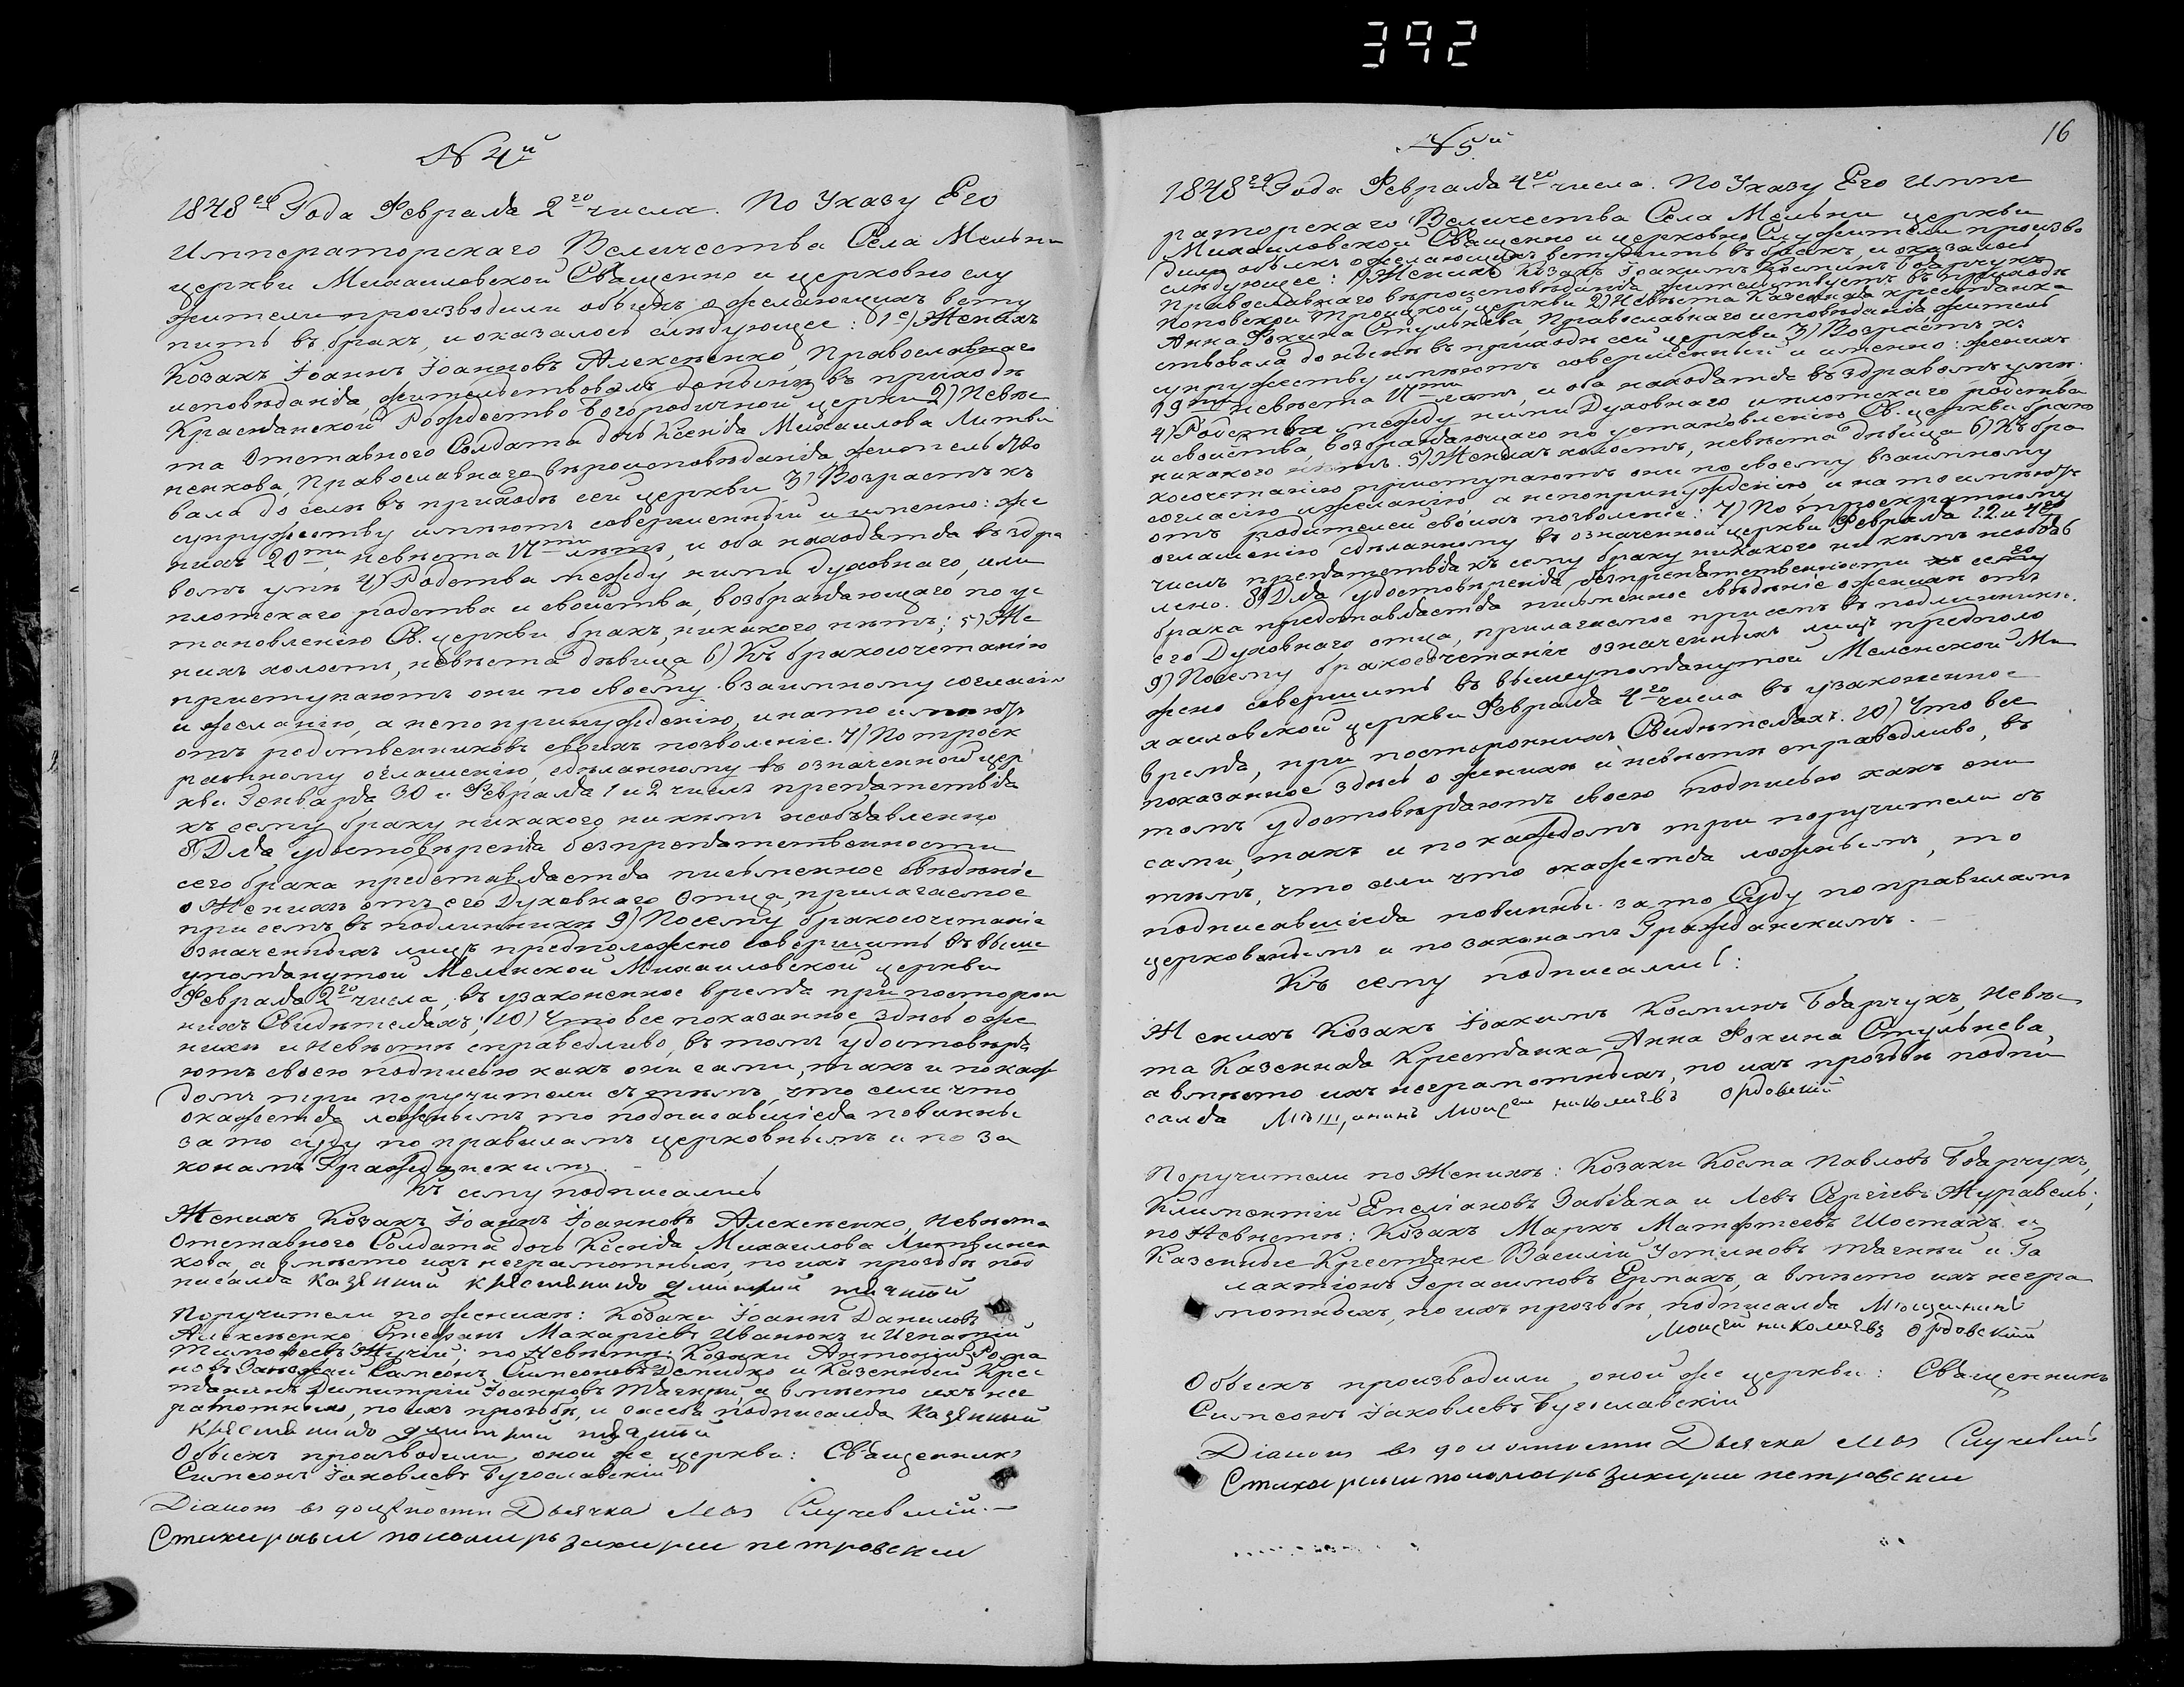 392
16
№ 4й
1848го Года Февраля 2го числа. По Указу Его
Императорскаго Величества Села Мельни
церкви Михаиловской Священно и церковно слу
жители производили обыскъ о желающихъ всту
пить въ бракъ, и оказалось слѣдующее: 1е) Женихъ
Козакъ Іоаннъ Іоанновъ Алексѣенко, Православнаго
исповѣданія, жительствовалъ донынѣ въ приходѣ
Рождество Богородичной церкви 2) Невѣс
та Отставного Солдата дочь Ксенія Михаилова Литви
ненкова, Православнаго вѣроисповѣданія, жительство
вала до селѣ въ приходѣ сей церкви 3) Возрастъ къ
супружеству имѣютъ совершенный и именно: же
нихъ 20ти, невѣста 17ти лѣтъ, и оба находятся въ здра
вомъ умѣ 4) Родства между ними духовнаго, или
плотскаго родства и свойства, возбраняющаго по ус
тановленію Св. церкви бракъ, никакого нѣтъ; 5) Же
нихъ холостъ, невѣста дѣвица 6) Къ бракосочетанію
приступаютъ они по своему взаимному согласію
и желанію, а непопринужденію, и на то имѣютъ
отъ родственниковъ своихъ позволеніе. 7) По троек
ратному оглашенію, сдѣланному въ означенной цер
кви Генваря 30 и Февраля 1 и 2 числъ препятствія
къ сему браку никакого никѣмъ необъявленно
8) Для удостовѣренія безпрепятственности
сего брака представляется письменное свѣдѣніе
о Женихѣ отъ его Духовнаго Отца, прилагаемое
при семъ въ подлинникѣ 9) Посему бракосочетаніе
означенныхъ лицъ предположено совершить въ выше
упомянутой Меленской Михаиловской церкви
Февраля 2го числа, въ узаконенное время при посторон
нихъ Свидѣтеляхъ; 10) Что все показанное здѣсь о же
нихѣ и невѣстѣ справедливо, въ томъ удостовѣря
ютъ своею подписью какъ они сами, такъ и покаж
домъ три поручители съ тѣмъ, что если что
окажется ложнымъ то подписавшіеся повинны
за то суду по правиламъ церковнымъ и по за
конамъ Гражданскимъ. —
Къ сему подписались
Женихъ Козакъ Іоаннъ Іоанновъ Алексѣенко, Невѣста
Отставного Солдата дочь Ксенія Михаилова Литвинен
кова, а вмѣсто ихъ неграмотныхъ, по ихъ прозьбѣ под
писался казенный
Поручители по женихѣ: Козаки Іоаннъ Даниловъ
Алексѣенко Стефанъ Макаріевъ Иванюкъ и Игнатій
Тимофеевъ Жучій; по Невѣстѣ: Козаки Антоній Рома
новъ Самсонъ Симеоновъ Демидко и Казенный Крес
тянинъ Димитрій Іоанновъ Тягный, а вмѣсто ихъ нег
рамотныхъ, по ихъ прозьбѣ, и онсебя подписался Казенный
Обыскъ производили оной же церкви: Священникъ
Симеонъ Іаковлевъ Бугославскій
Діаконъ въ должности Дьячка
Стихарный пономарь Захарій Петровскій
№ 5й
1848го Года Февраля 4го числа. По Указу Его Импе
раторскаго Величества Села Мельни церкви
Михаиловской Священно и церковно Служители произво
дили обыскъ о желающихъ вступить въ бракъ, и оказалось
слѣдующее: 1) Женихъ Козакъ Іоакимъ Косминъ Бдарчукъ
Православнаго вѣроисповѣданія жительствуетъ въ приходѣ
Поповской Троицкой церкви 2) Невѣста Казенная крестьянка
Анна Фокина Стульнева, Православнаго исповѣданія, житель
ствовала донынѣ въ приходѣ сей церкви 3) Возрастъ къ
супружеству имѣютъ совершенный и именно: женихъ
19ти невѣста 17ти лѣтъ, и оба находятся въ здравомъ умѣ.
4) Родства между ними Духовнаго и плотскаго родства
и свойства, возбраняющаго по установленію Св. церкви бракъ
никакого нѣтъ. 5) Женихъ холостъ, невѣста дѣвица 6) Къ бра
косочетанію приступаютъ они по своему взаимному
согласію и желанію а непопринужденію и на то имѣютъ
отъ родителей своихъ позволеніе: 7) По троекратному
оглашенію сдѣланному въ означенной церкви Февраля 1. 2. и 4го
числъ препятствія къ сему браку никакого никѣмъ необъяв
лено. 8) Для удостовѣренія безпрепятственности сего
брака представляется письменное свѣдѣніе о женихѣ отъ
его Духовнаго отца, прилагаемое при семъ въ подлинникѣ.
9) Посему бракосочетаніе означенныхъ лицъ предполо
жено совершить въ вышеупомянутой Меленской Ми
хаиловской церкви Февраля 4го числа въ узаконенное
время, при постороннихъ Свидѣтеляхъ. 10) Что все
показанное здѣсь о женихѣ и невѣстѣ справедливо, въ
томъ удостовѣряютъ своею подписью какъ они
сами, такъ и по каждомъ три поручители съ
тѣмъ, что если что окажется ложнымъ, то
подписавшіеся повинны за то Суду по правиламъ
церковнымъ и по законамъ Гражданскимъ. —
Къ сему подписались:
Женихъ Козакъ Іоакимъ Косминъ Бдарчукъ, Невѣс
та Казенная Крестьянка Анна Фокина Стульнева,
а вмѣсто ихъ неграмотныхъ, по ихъ прозьбѣ подпи
сался Мѣщанинъ Моисей Николаевъ Ордовскій
Поручители по Женихѣ: Козаки Косма Павловъ Бдарчукъ,
Климентій Емеліановъ Забіяка и Левъ Сергіевъ Журавель;
по Невѣстѣ: Козакъ Маркъ Матфеевъ Шостакъ и
Казенные Крестьяне Василій Устиновъ Тягный и Га
лактіонъ Герасимовъ Ермакъ, а вмѣсто ихъ негра
мотныхъ, по ихъ прозьбѣ, подписался Мѣщанинъ
Моисей Николаевъ Ордовскій
Обыскъ производили, оной же церкви: Священникъ
Симеонъ Іаковлевъ Бугославскій
Діаконъ въ должности Дьячка
Стихарный пономарь Захарій Петровскій